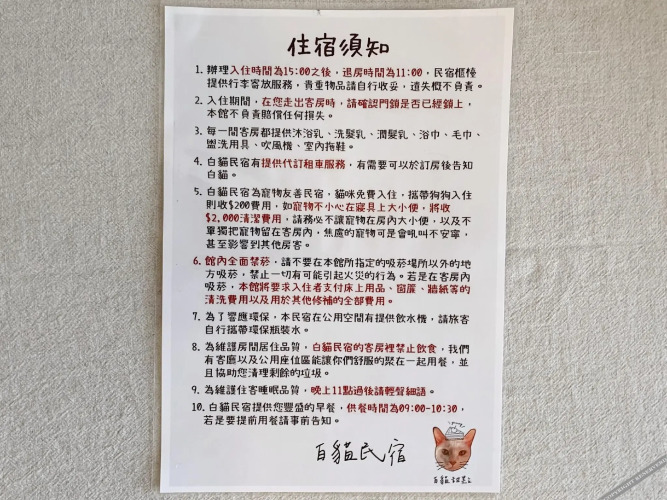 住宿須知
1. 辦理入住時間為15:00之後，退房時間為11:00，民宿櫃檯
提供行李寄放服務，貴重物品請自行收妥，遺失概不負責。
2. 入住期間，在您走出客房時，請確認門鎖是否已經鎖上，
本館不負責賠償任何損失。
3. 每一間客房都提供沐浴乳、洗髮乳、潤髮乳、浴巾、毛巾、
盥洗用具、吹風機、室內拖鞋。
4. 白貓民宿有提供代訂租車服務，有需要可以於訂房後告知
白貓。
5. 白貓民宿為寵物友善民宿，貓咪免費入住，攜帶狗狗入住
則收$200費用，如寵物不小心在寢具上大小便，將收
$2,000清潔費用，請務必不讓寵物在房內大小便，以及不
單獨把寵物留在客房內，焦慮的寵物可是會吼叫不安寧，
甚至影響到其他房客。
6. 館內全面禁菸，請不要在本館所指定的吸菸場所以外的地
方吸菸，禁止一切有可能引起火災的行為。若是在客房內
吸菸，本館將要求入住者支付床上用品、窗簾、牆紙等的
清洗費用以及用於其他修補的全部費用。
7. 為了響應環保，本民宿在公用空間有提供飲水機，請旅客
自行攜帶環保瓶裝水。
8. 為維護房間居住品質，白貓民宿的客房裡禁止飲食，我們
有客廳以及公用座位區能讓你們舒服的聚在一起用餐，並
且協助您清理剩餘的垃圾。
9. 為維護住客睡眠品質，晚上11點過後請輕聲細語。
10. 白貓民宿提供您豐盛的早餐，供餐時間為09:00-10:30，
若是要提前用餐請事前告知。
白貓民宿